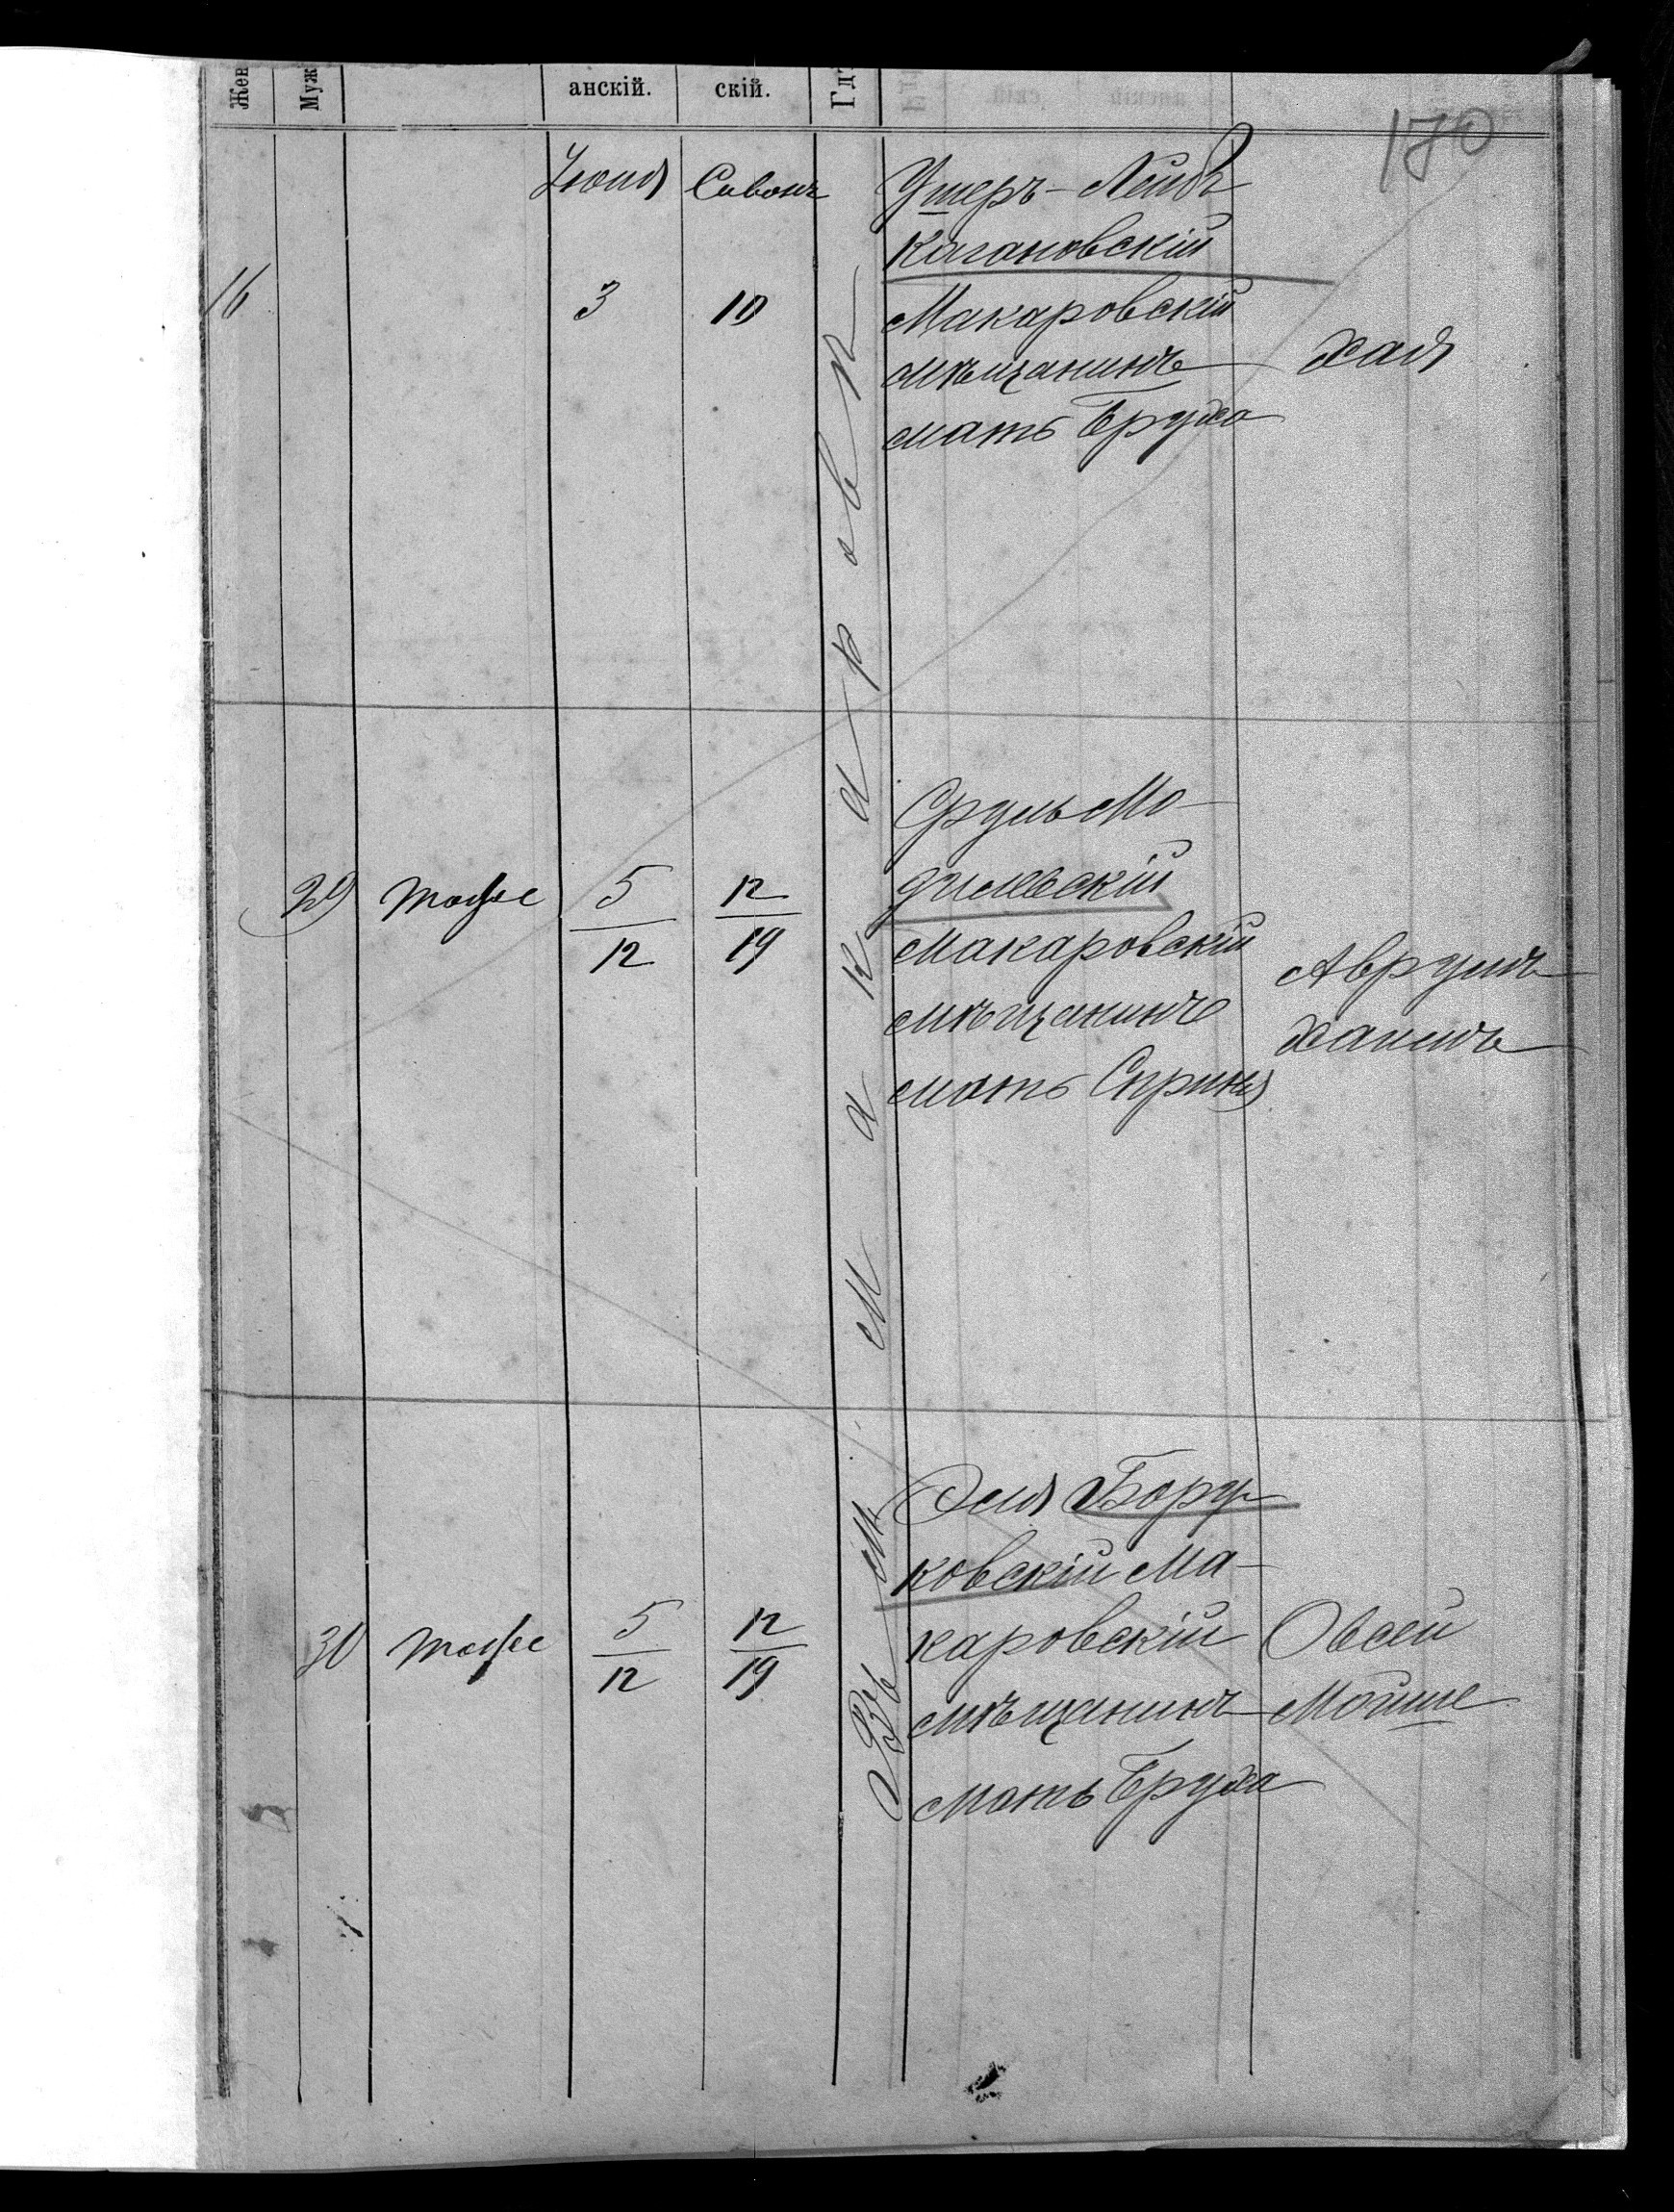 Жен
Муж
анскій.
скій.
Гд
170
Іюня
Сивонъ
16
3
10
Ушеръ-Лейбъ
Кагановскій
Макаровскій
мѣщанинъ
мать Бруха
Хая
29
тоже
5
12
12
19
Сруль Мо-
гилевскій
Макаровскій
мѣщанинъ
мать Сприня
Аврумъ
Хаимъ
30
тоже
5
12
12
19
Эля Бору-
ковскій Ма-
каровскій
мѣщанинъ
мать Бруха
Овсей
Мойше
Въ м. Макаровѣ